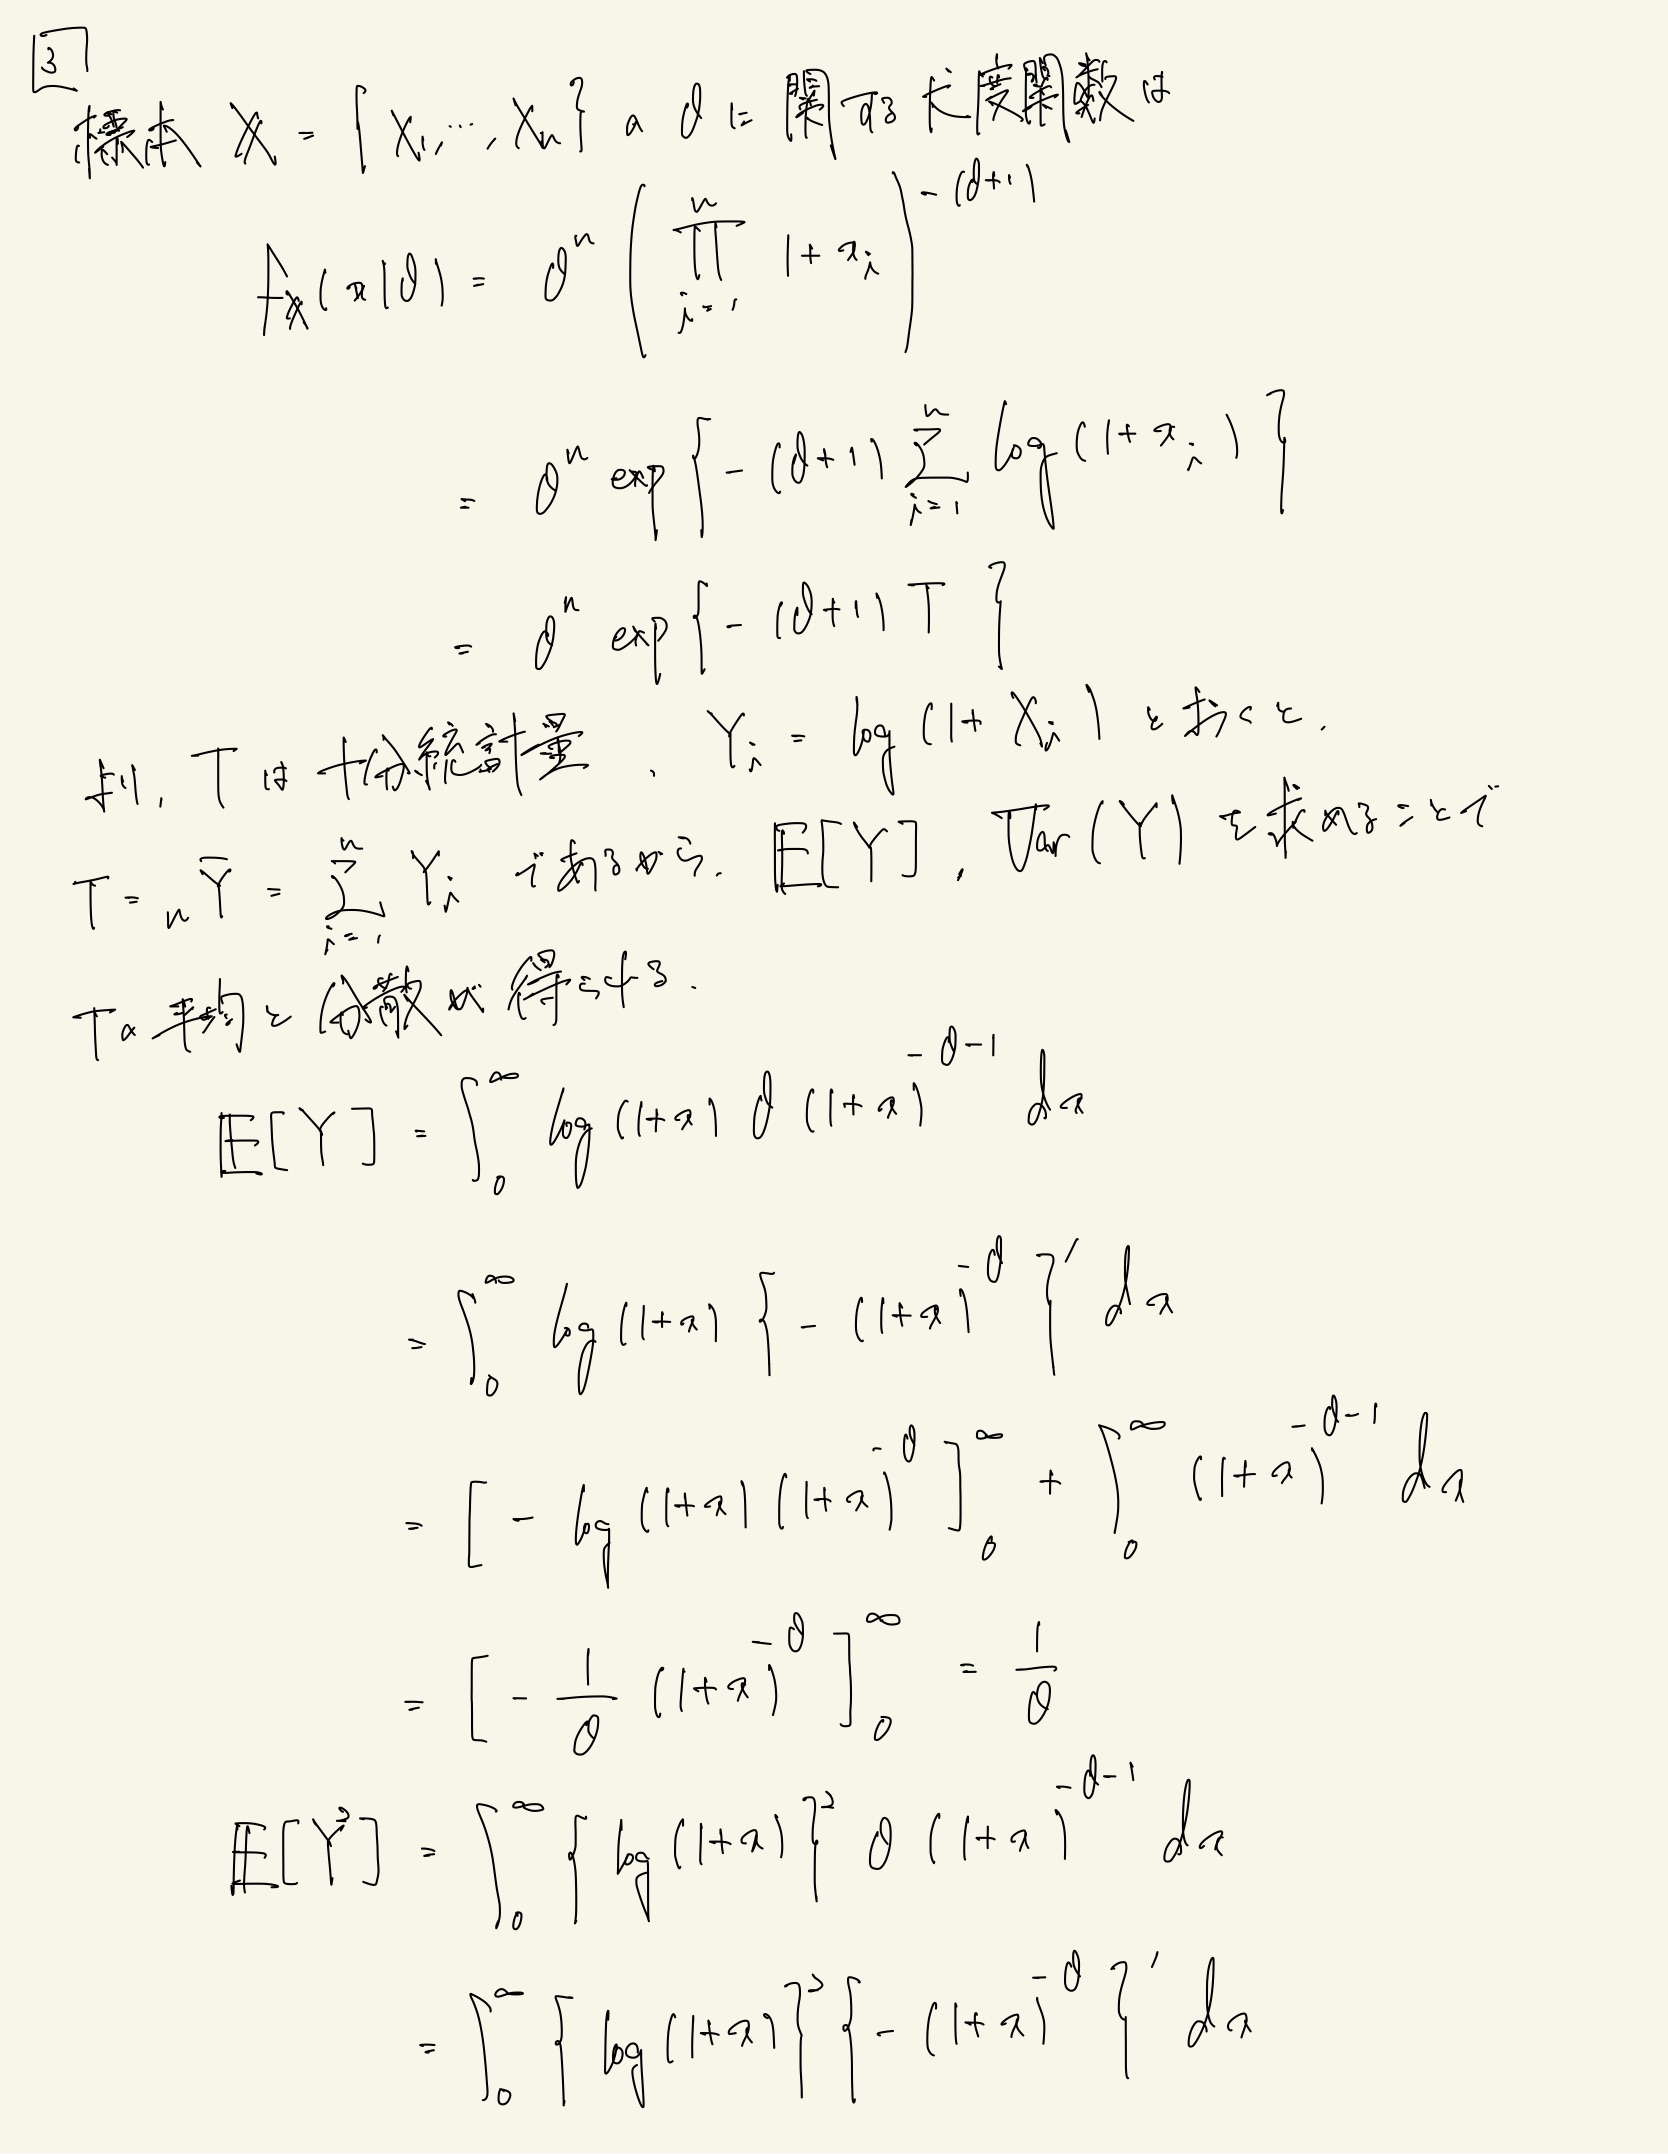 3
標本 X = {X₁, …, Xₙ} の θ に 関する 尤度関数は
f_X(x|θ) = θⁿ ( ∏_{i=1}^{n} 1 + x_i )^{-(θ+1)}
= θⁿ exp { - (θ+1) ∑_{i=1}^{n} log (1 + x_i) }
= θⁿ exp { - (θ+1) T }
より, T は 十分統計量 . Y_i = log (1 + X_i) とおくと,
T = n Ȳ = ∑_{i=1}^{n} Y_i であるから, E[Y] , Var(Y) を求めることで
Tの平均と分散が得られる.
E[Y] = ∫_0^∞ log (1+x) θ (1+x)^{-θ-1} dx
= ∫_0^∞ log (1+x) { - (1+x)^{-θ} }' dx
= [ - log (1+x) (1+x)^{-θ} ]_0^∞ + ∫_0^∞ (1+x)^{-θ-1} dx
= [ - 1/θ (1+x)^{-θ} ]_0^∞ = 1/θ
E[Y²] = ∫_0^∞ { log (1+x) }² θ (1+x)^{-θ-1} dx
= ∫_0^∞ { log (1+x) }² { - (1+x)^{-θ} }' dx